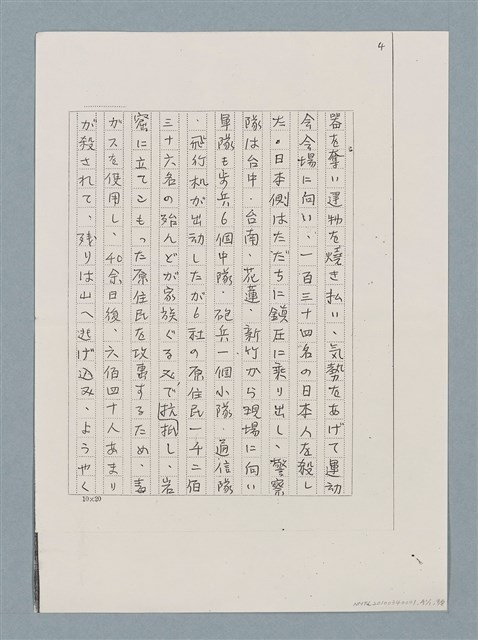 4
器を奪い建物を焼き払い、気勢をあげて運動
会会場に向い、一百三十四名の日本人を殺し
た。日本側はただちに鎮圧に乗り出し、警察
隊は台中・台南・花蓮・新竹から現場に向い
軍隊も歩兵6個中隊・砲兵一個小隊・通信隊
・飛行机が出動したが6社の原住民一千二佰
三十六名の殆んどが家族ぐるみで抗抵し、岩
窟に立てこもった原住民を攻撃するため、毒
ガスを使用し、40余日後、六佰四十人あまり
が殺されて、残りは山へ逃げ込み、ようやく
10×20